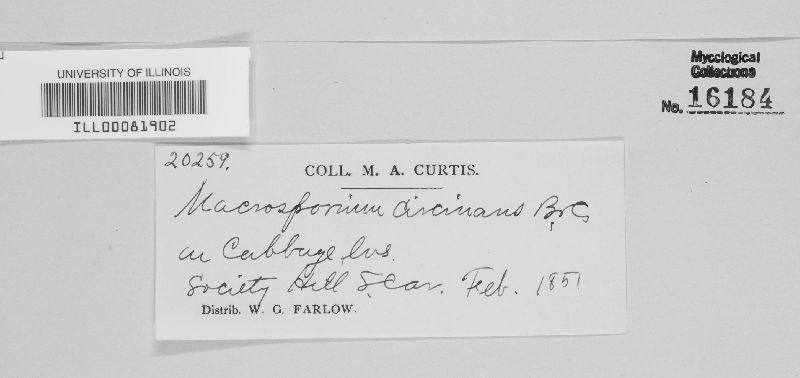 UNIVERSITY OF ILLINOIS
ILL00081902
Mycological
Collections
No. 16184
20259.
COLL. M. A. CURTIS.
Macrosporium circinans B&C
on Cabbage lvs.
Society Hill S. Car. Feb. 1851
Distrib. W. G. FARLOW.